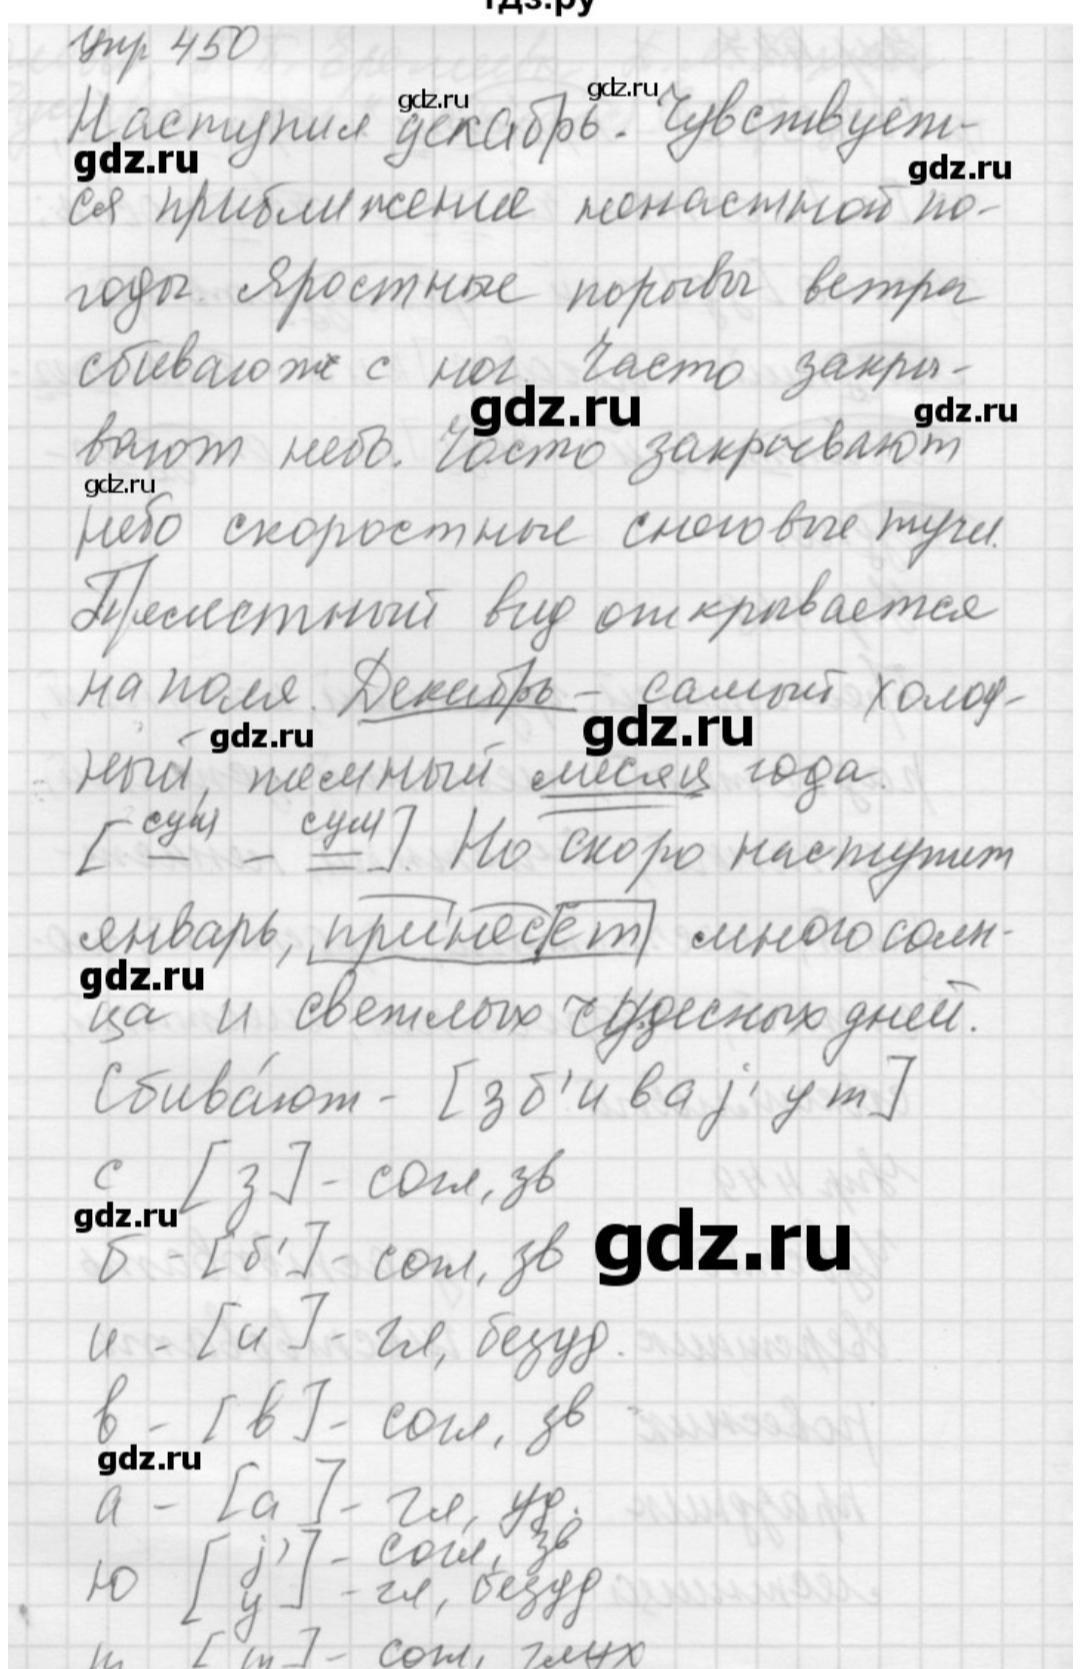 гдз.ру
упр 450
gdz.ru gdz.ru
Наступил декабрь. Чувствует-
gdz.ru gdz.ru
ся приближение ненастной по-
годы. Яростные порывы ветра
сбивают с ног. Часто закры-
gdz.ru gdz.ru
вают небо. Часто закрывают
gdz.ru
небо скоростные снеговые тучи.
Прелестный вид открывается
на поля. Декабрь - самый холод-
gdz.ru gdz.ru
ный, темный месяц года.
[сущ - сущ]. Но скоро наступит
январь, принесёт много солн-
gdz.ru
ца и светлых чудесных дней.
Сбива́ют - [зб'иваj'ут]
с [з] - согл, зв
gdz.ru gdz.ru
б - [б'] - согл, зв
и - [и] - гл, безуд.
в - [в] - согл, зв
gdz.ru
а - [а] - гл, уд.
ю [j'] - согл, зв
[у] - гл, безуд
т [т] - согл, глух